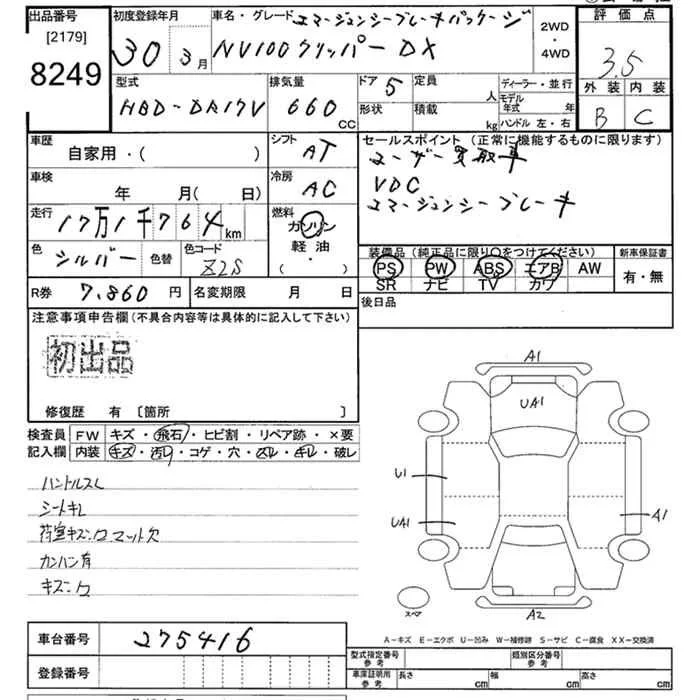 出品番号 [2179] 8249
初度登録年月 30 年 3月
車名・グレード エマージェンシーブレーキパッケージ
NV100クリッパー DX
2WD ・ 4WD
評価点 3.5
外装 B 内装 C
型式 HBD-DR17V
排気量 660 CC
ドア 5 形状
定員 人 積載 kg
ディーラー・並行
モデル年式 年
ハンドル 左・右
車歴 自家用・( )
シフト AT
車検 年 月(日)
冷房 AC
走行 17万1千764km
燃料 ガソリン 軽油 ・ ( )
色 シルバー 色替 色コード Z2S
R券 7,860 円 名変期限 月 日
セールスポイント (正常に機能するものに限ります)
ユーザー買取車
VDC
エマージェンシーブレーキ
装備品(純正品に限り○をつけてください)
PS PW ABS エアB AW
SR ナビ TV カワ
新車保証書 有・無
後日品
注意事項申告欄(不具合内容等は具体的に記入して下さい)
初出品
修復歴 有 [箇所 ]
検査員記入欄
FW キズ・飛石・ヒビ割・リペア跡・×要
内装 キズ・汚レ・コゲ・穴・スレ・キレ・破レ
ハンドルスレ
シートキレ
荷室キズ
カンバン有
A1
UA1
U1
UA1
A1
スペア
A2
A-キズ E-エクボ U-凹み W-補修跡 S-サビ C-腐食 XX-交換済
車台番号 275416
登録番号
型式指定番号 参考 類別区分番号 参考
車庫証明用 参考 長さ cm 幅 cm 高さ cm